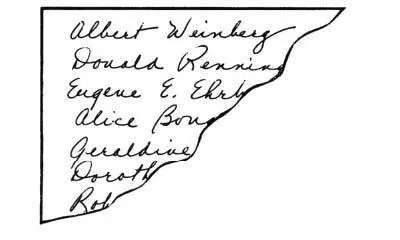 Albert Weinberg
Donald Renning
Eugene E. Ehrl
Alice Bong
Geraldine
Doroth
Rob